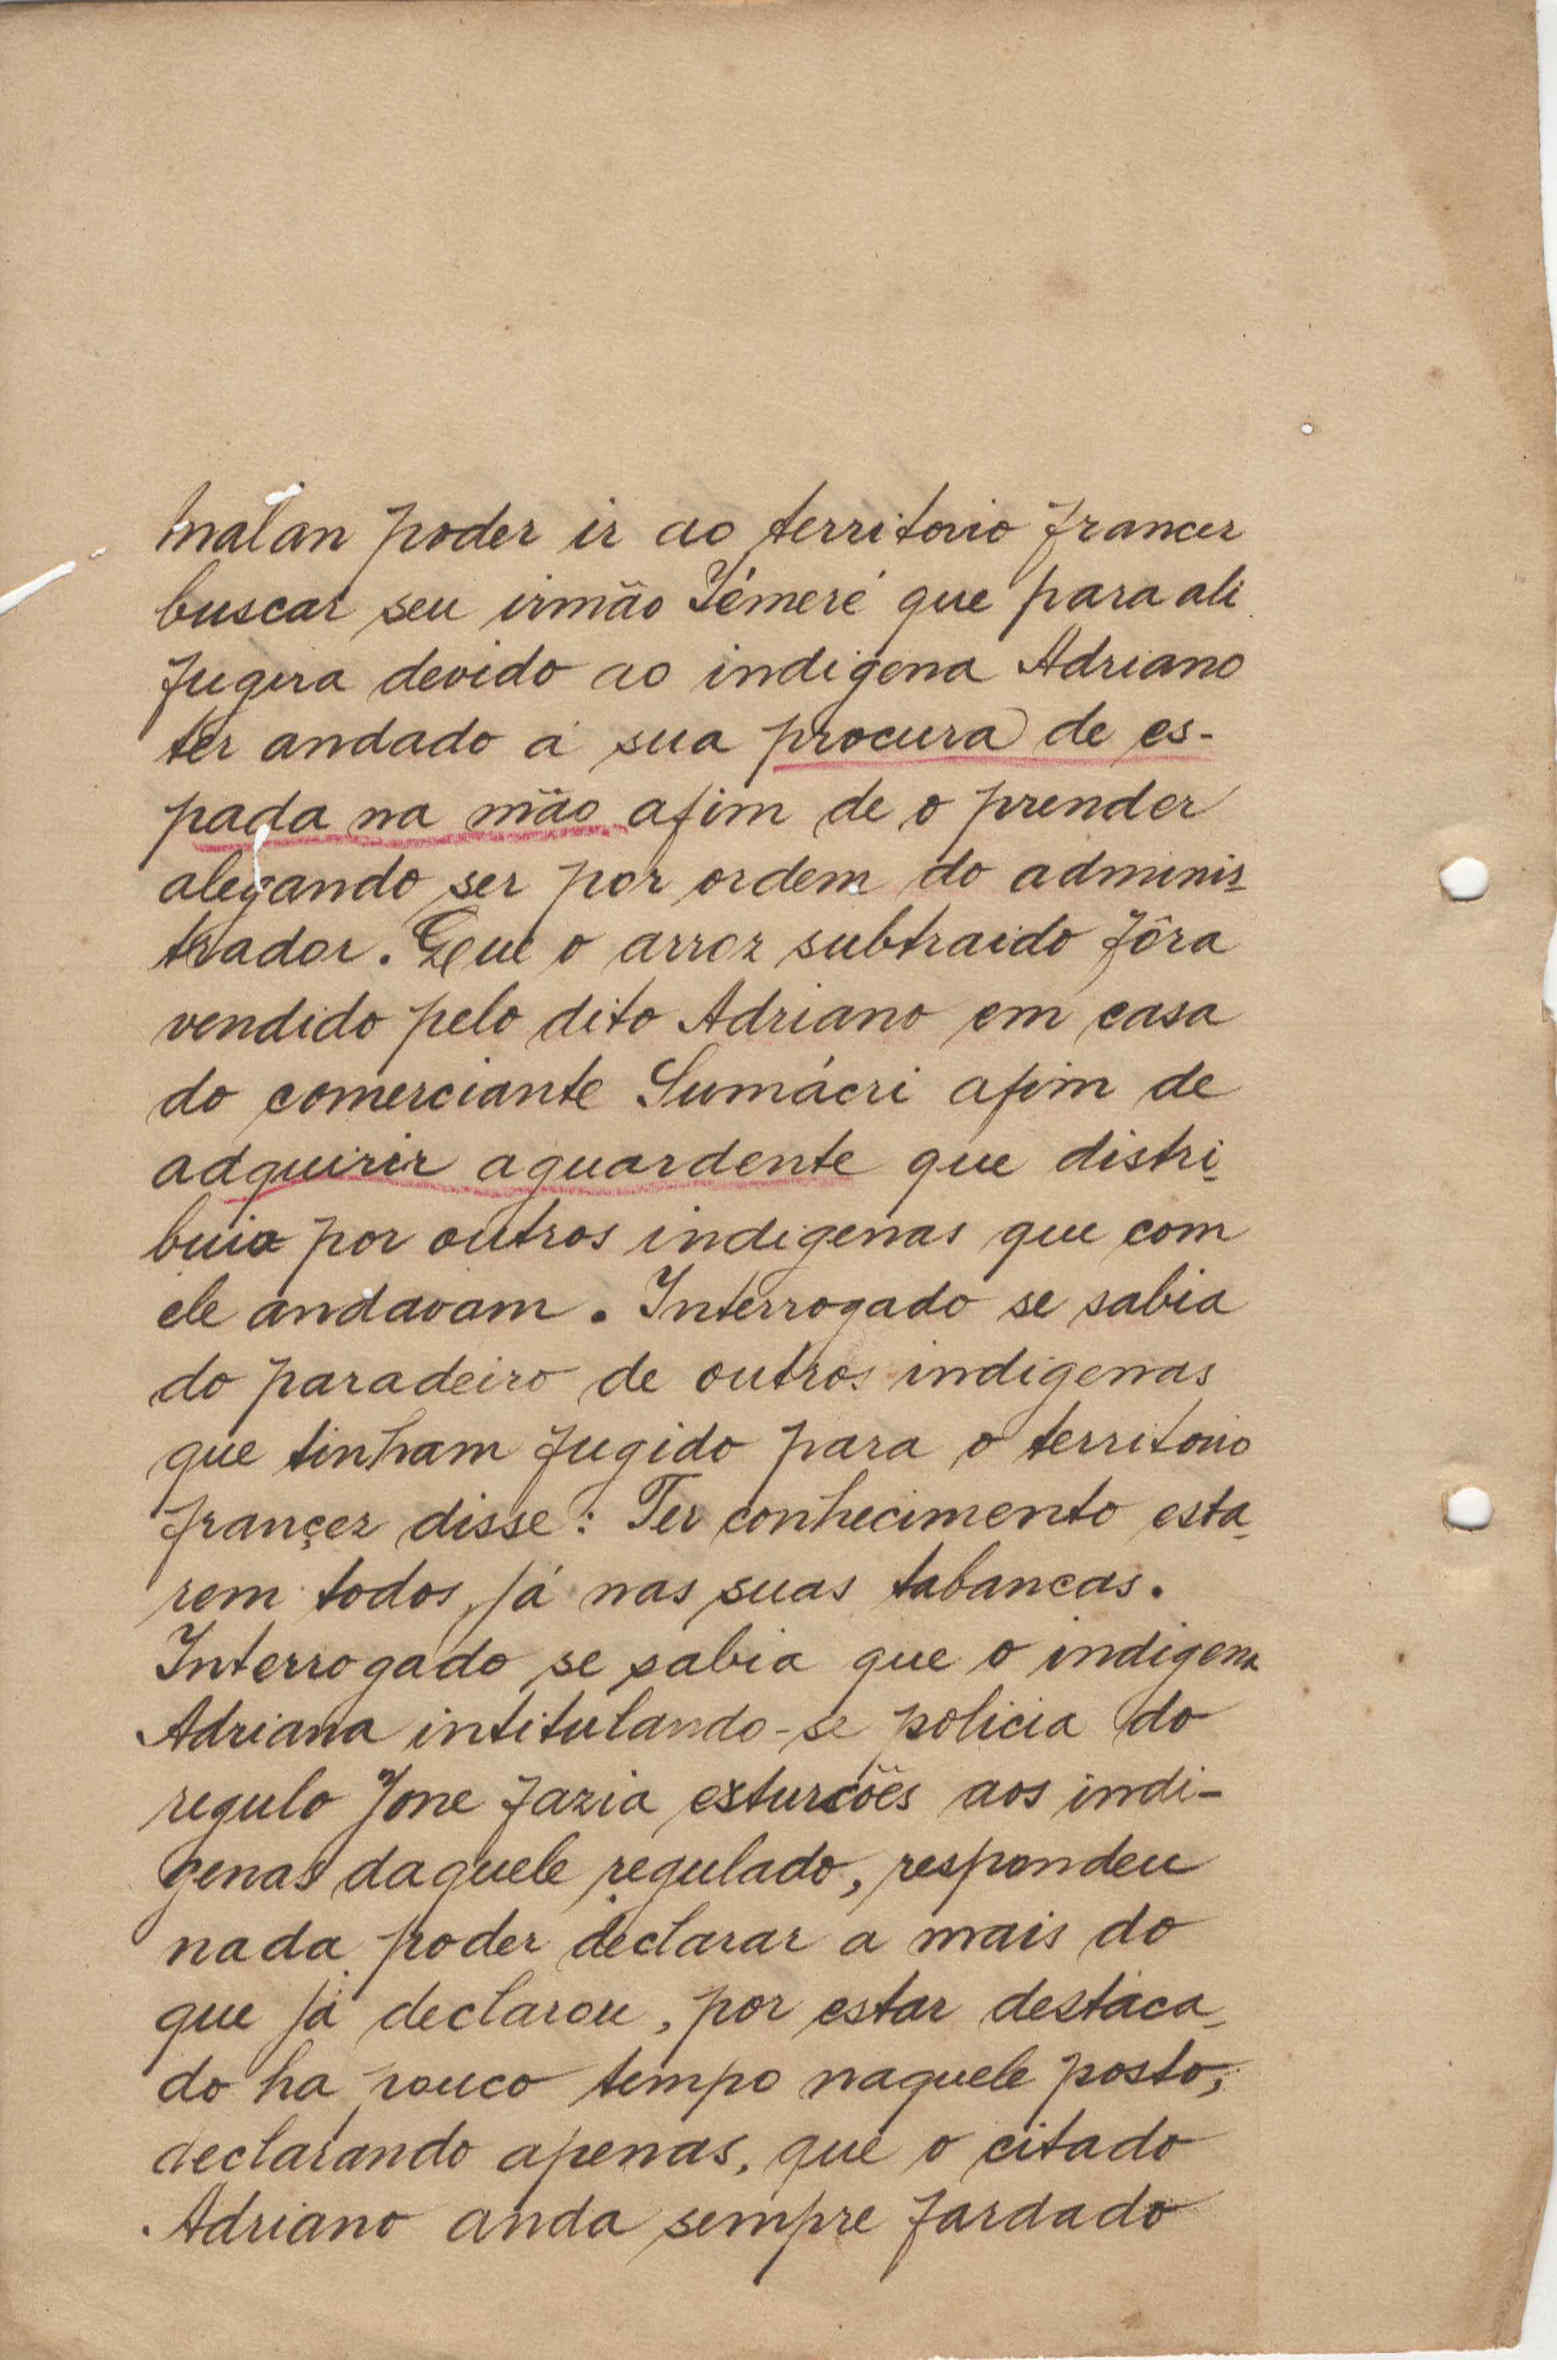 malan poder ir ao territorio francez
buscar seu irmão Témeré que para ali
fugira devido ao indigena Adriano
ter andado á sua procura de es-
pada na mão afim de o prender
alegando ser por ordem do adminis-
trador. Que o arroz subtraido fôra
vendido pelo dito Adriano em casa
do comerciante Sumácri afim de
adquirir aguardente que distri-
buia por outros indigenas que com
ele andavam. Interrogado se sabia
do paradeiro de outros indigenas
que tinham fugido para o territorio
françez disse: Ter conhecimento esta-
rem todos já nas suas tabancas.
Interrogado se sabia que o indigena
Adriana intitulando-se policia do
regulo Jone fazia exturcões aos indi-
genas daquele regulado, respondeu
nada poder declarar a mais do
que já declarou, por estar destaca-
do ha pouco tempo naquele posto,
declarando apenas, que o citado
Adriano anda sempre fardado